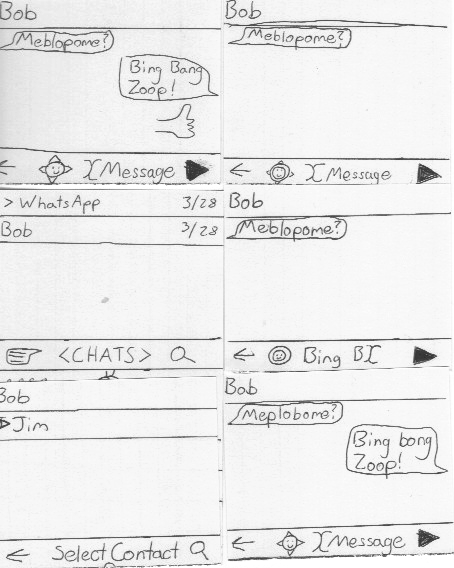 Bob
Meblopome?
Bing Bang
Zoop!
Message
Bob
Meblopome?
Message
> WhatsApp 3/28
Bob 3/28
<CHATS>
Bob
Meblopome?
Bing B
Bob
Jim
Select Contact
Bob
Meplobome?
Bing bong
Zoop!
Message